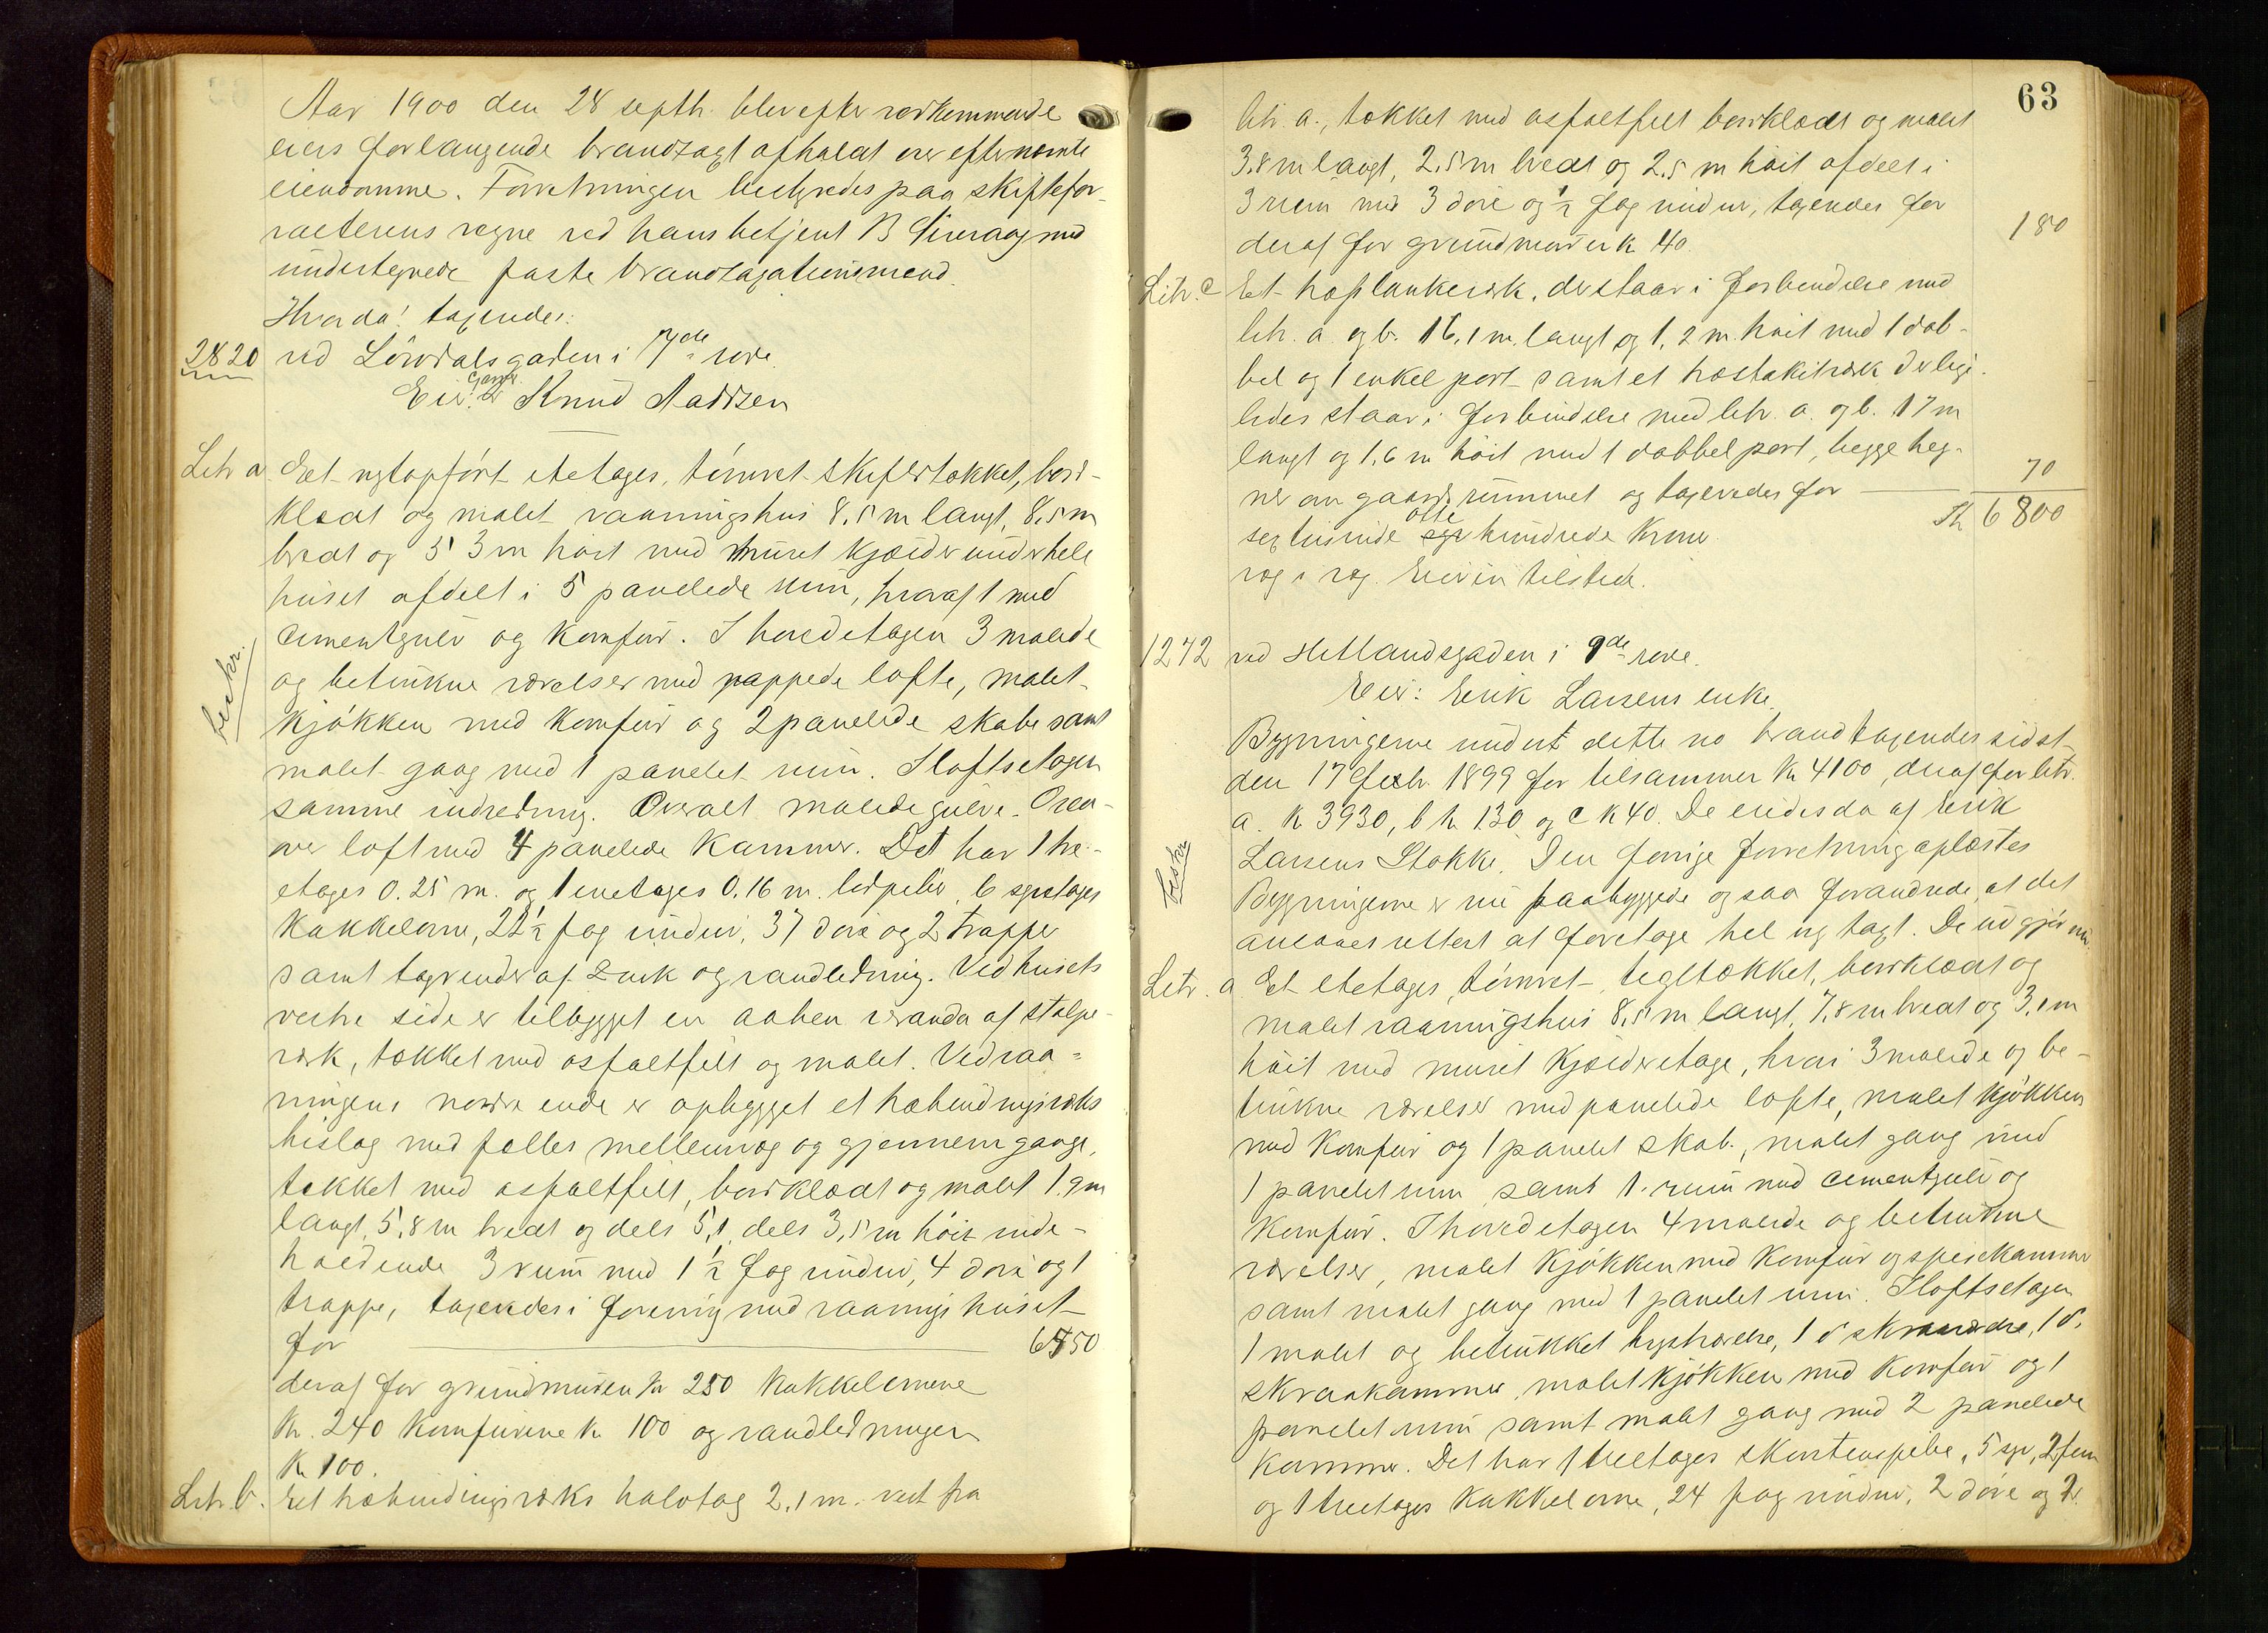 Aar 1900 den 28 septbr. blev efter vedkommende
eiers forlangende brandtaxt afholdt over efternævnte
eiendomme. Forretningen bestyredes paa skiftefor-
valterens vegne ved hans betjent B. med
undertegnede faste brandtaxationsmænd.
Hvorda! taxeredes:
2820 ved Lövdalsgaden i 7de rode.
Eier: Knud Aadtzen
Litr a. Et nytopfört etetages, tömret skifertækket, bord-
klædt og malet vaaningshus 8,5 m langt, 8,5 m
bredt og 5 3 m höit med muret kjælder under hele
huset afdelt i 5 panelede rum, hvoraf 1 med
cementgulv og komfur. I hovedetagen 3 malede
og betrukne værelser med pappede lofte, malet
kjökken med komfur og 2 panelede skabe samt
malet gang med 1 panelet rum. I loftsetagen
samme indredning. Overalt malede gulve. Oven-
over loft med 4 panelede kammer. Det har 1 tre-
etages 0.25 m. og 1 enetages 0.16 m. 6 
kakkelovne, 22½ fag vinduer, 37 döre og 2 trapper
samt tagrender af zink og vandledning. Ved husets
vestre side er tilbygget en aaben veranda af stolpe-
værk, tækket med asfaltfilt og malet. Ved vaa-
ningens nordre ende er opbygget et halvbindingsværks
bislag med fælles mellemvæg og gjennemgange,
tækket med asfaltfilt, bordklædt og malet 1.9 m
langt, 5,8 m bredt og dels 5,1, dels 3,5 m höit inde-
holdende 3 rum med 1½ fag vinduer, 4 döre og 1
trappe, taxeredes i forening med vaaningshuset
for 6550
deraf for grundmuren kr 250 kakkelovnene
Kr. 240 komfurene kr 100 og vandledningen
Kr 100.
Litr. b. Et halvbindingsværks halvtag 2,1 m. vest fra
beskr.
63
litr. a., tækket med asfaltfilt bordklædt og malet
3.8 m langt, 2.5 m bredt og 2.5 m höit afdelt i
3 rum med 3 döre og ½ fag vinduer, taxeredes for 180
deraf for grundmuren kr 40.
Litr. c Et höiplankeværk, der staar i forbindelse med
litr. a og b. 16,1 m. langt og 1,2 m höit med 1 dob-
bel og 1 enkel port samt et höistakitværk der lige-
ledes staar i forbindelse med litr. a. og b. 17 m
langt og 1,6 m höit med 1 dobbel port, begge heg-
ner om gaardsrummet og taxeredes for 70
Kr 6800
sextusinde otte hundrede kroner
Eieren tilstede.
1272 ved Hetlandsgaden i 9de rode.
Eier: Erik Larsens enke.
Bygningerne under dette no brandtaxeredes sidst
den 17 febr. 1899 for tilsammen kr 4100, deraf for litr.
a. kr 3930, b kr 130 og c kr 40. De eiedes da af Erik
Larsens Stokke. Den forrige forretning oplæstes
Bygningerne er nu paabyggede og saa forandrede, at det
ansaaes rettest at foretage hel ny taxt. De udgjör nu:
Litr. a. Et etetages, tömret, tegltækket, bordklædt og
malet vaaningshus 8,5 m langt, 7,8 m bredt og 3,1 m
höit med muret kjælderetage, hvori 3 malede og be-
trukne værelser med panelede lofte, malet kjökken
med komfur og 1 panelet skab, malet gang med
1 panelet rum samt 1 rum med cementgulv og
komfur. I hovedetagen 4 malede og betrukne
værelser, malet kjökken med komfur og spisekammer
samt malet gang med 1 panelet rum. I loftsetagen
1 malet og betrukket kvistværelse, 1 d° skraaværelse, 1 d°
skraakammer, malet kjökken med komfur og 1
panelet rum samt malet gang med 2 panelede
kammer. Det har 1 treetages skorstenspibe, 5 , 2 fem
og 1 treetages kakkelovne, 24 fag vinduer, 2 döre og 2
beskr